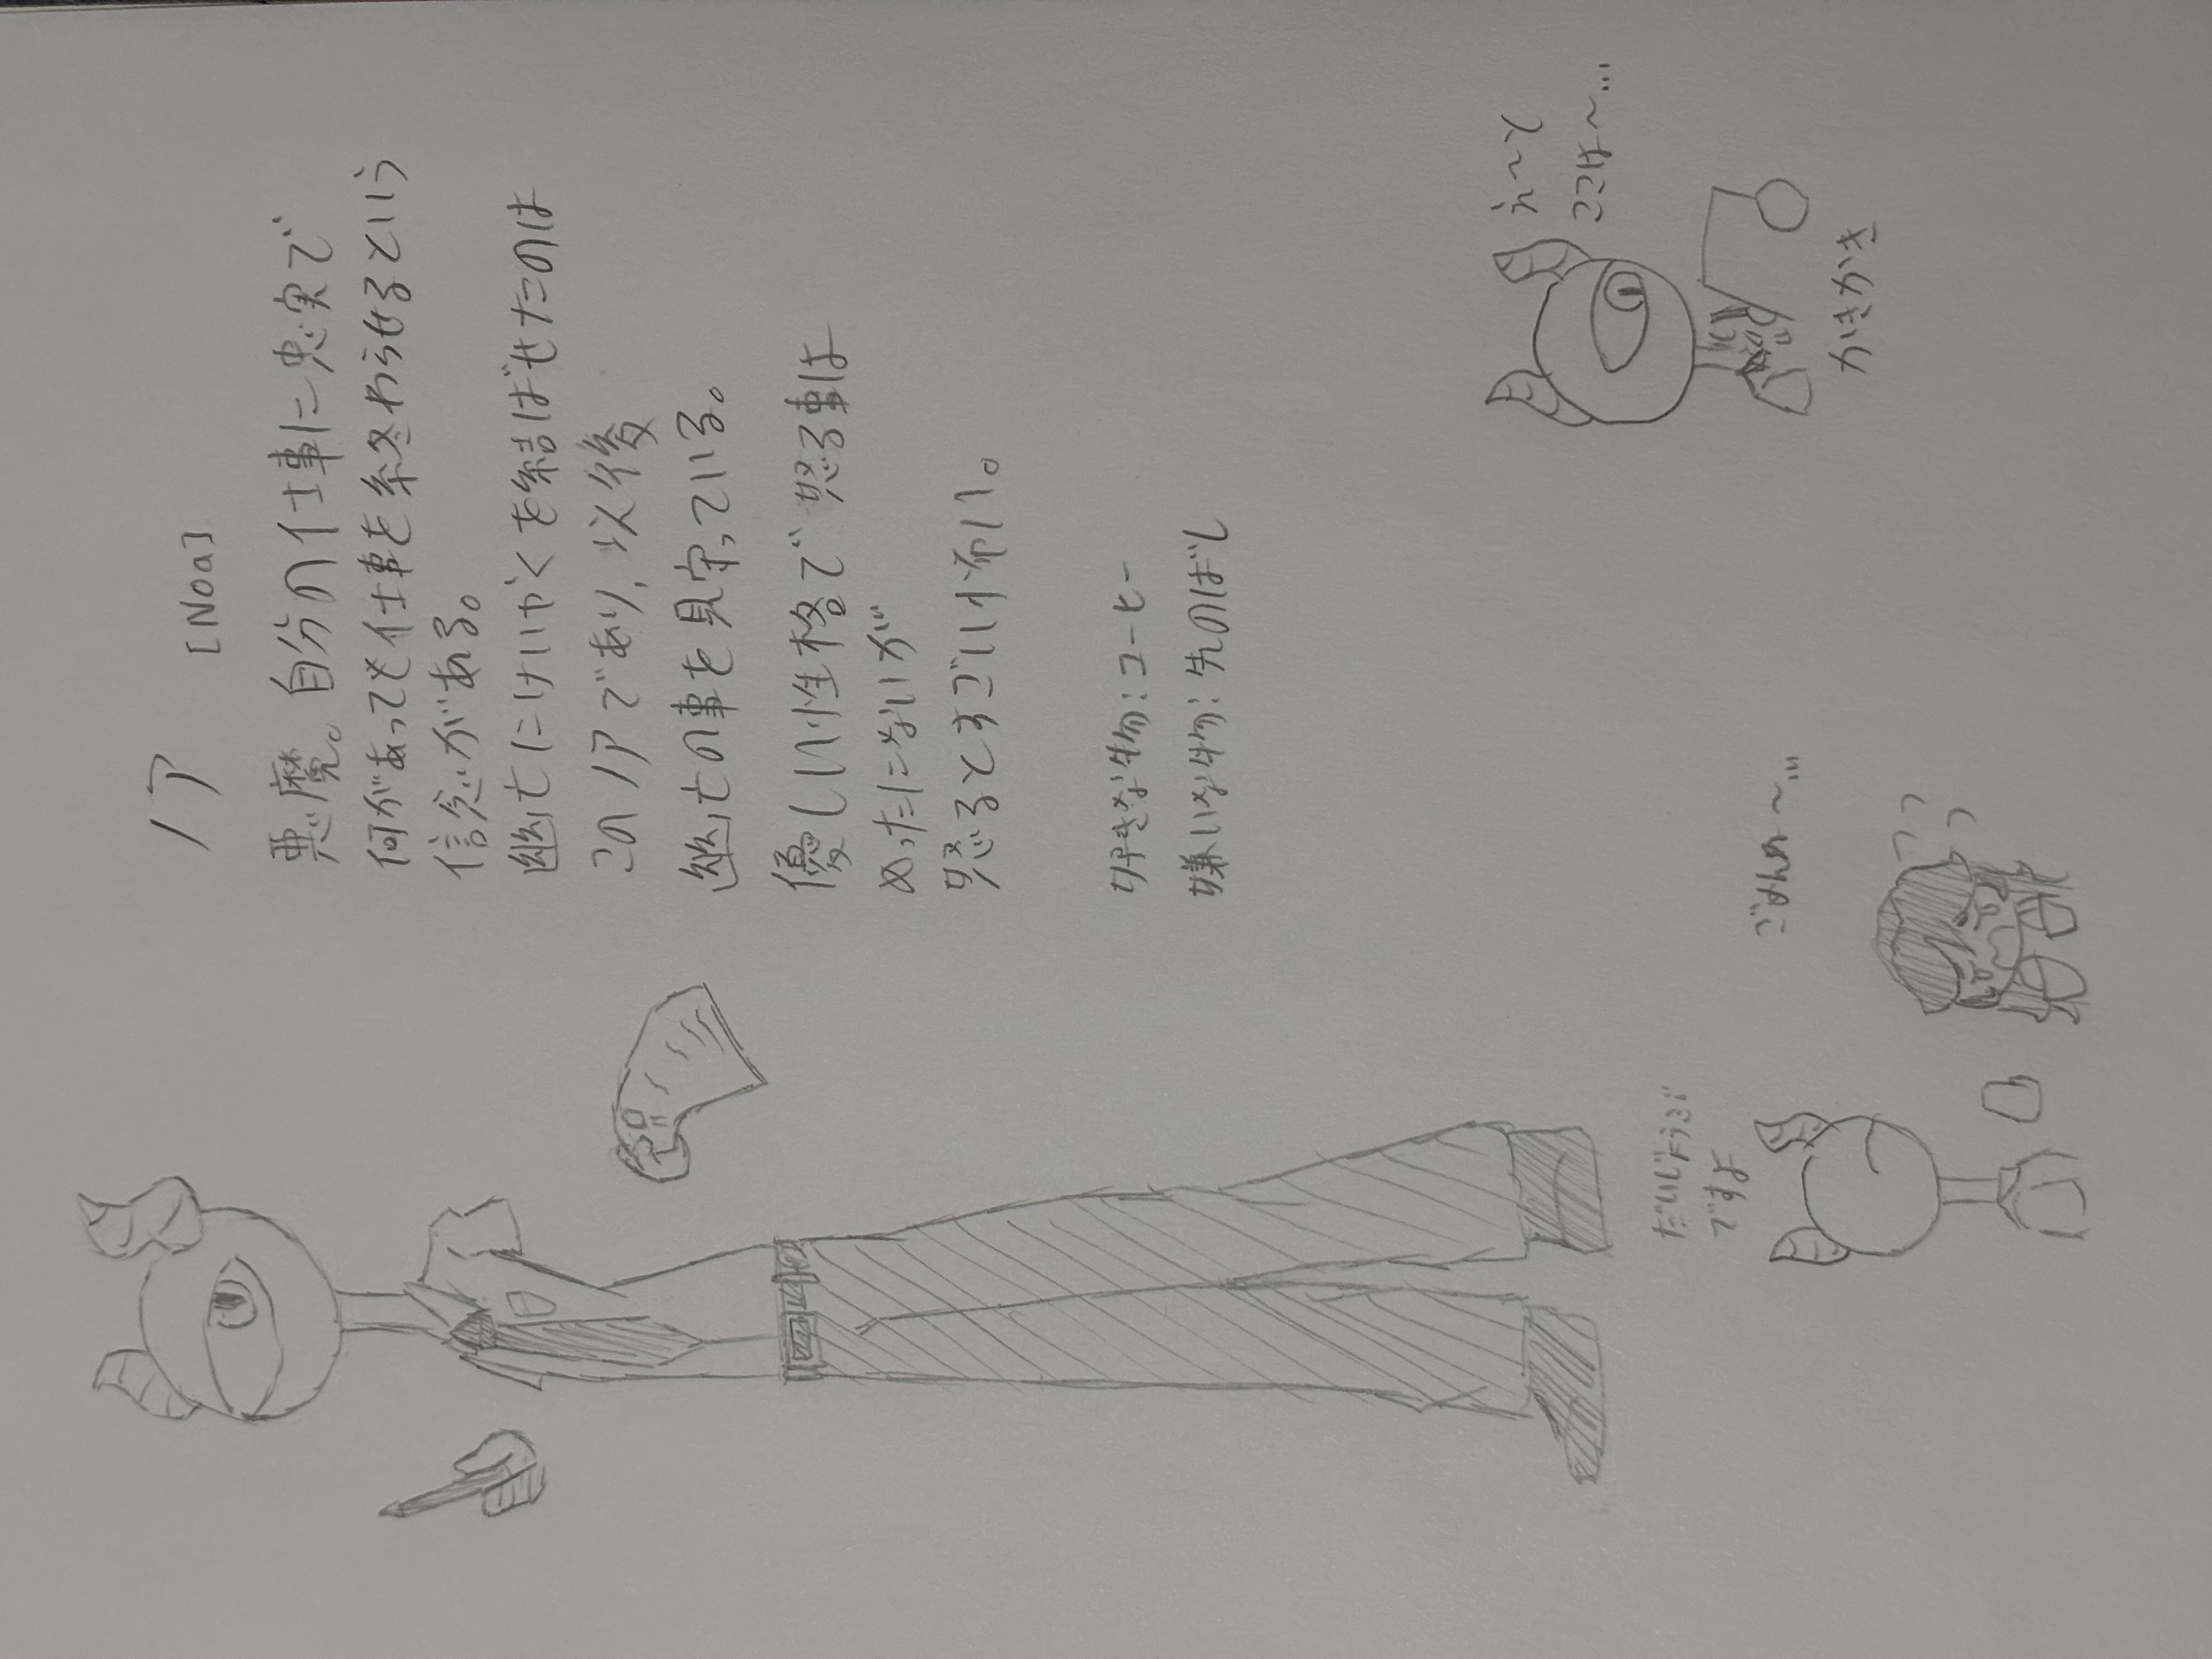 ノア
[Noa]
悪魔。自分の仕事に忠実で
何があっても仕事を終わらせるという
信念がある。
幽亡にけいやくを結ばせたのは
このノアであり、以後
幽亡の事を見守っている。
優しい性格で怒る事は
めったにないが
怒るとすごい怖い。
好きな物:コーヒー
嫌いな物:先のばし
え〜と
ここは〜…
かきかき
ごめんね〜…
だいじょうぶ
ですよ